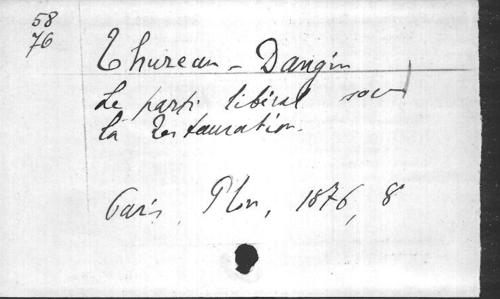 58
76
Thureau-Dangin
Le parti libéral sous
la Restauration.
Paris, Plon, 1876, 8°